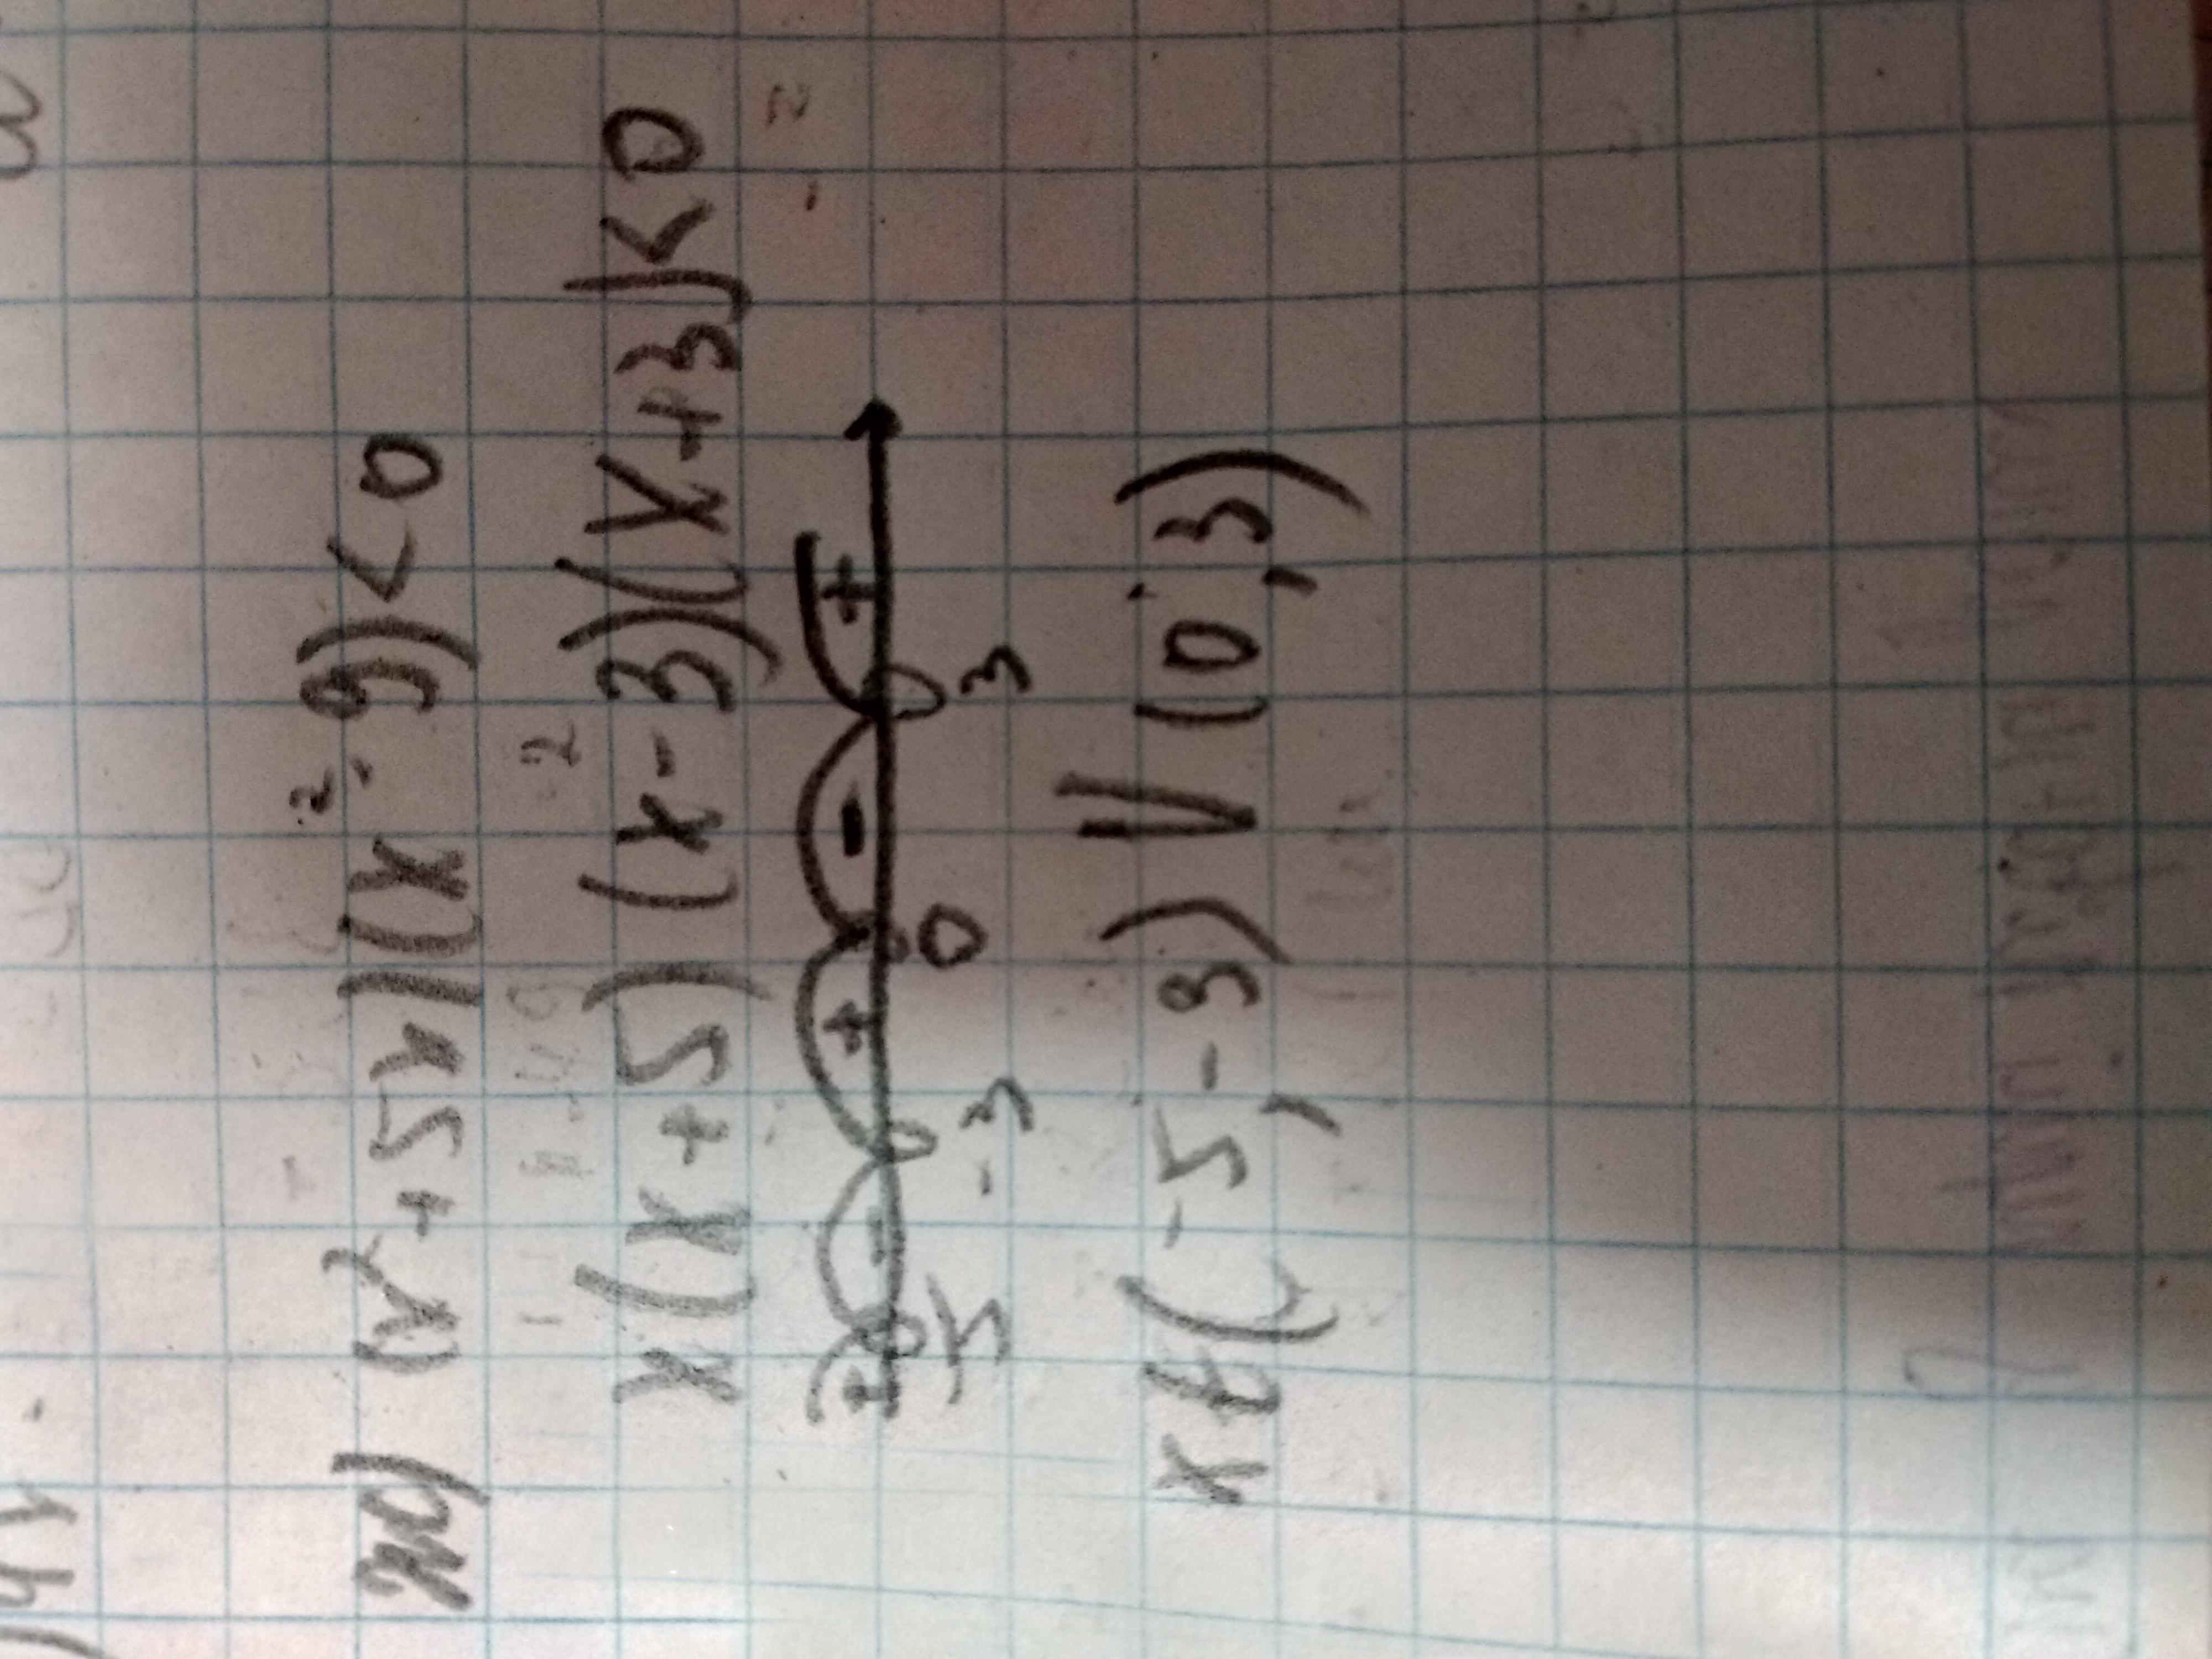 ж) (x²+5x)(x²-9)<0
x(x+5)(x-3)(x+3)<0
+ - + - +
-5 -3 0 3
x∈(-5;-3)V(0;3)